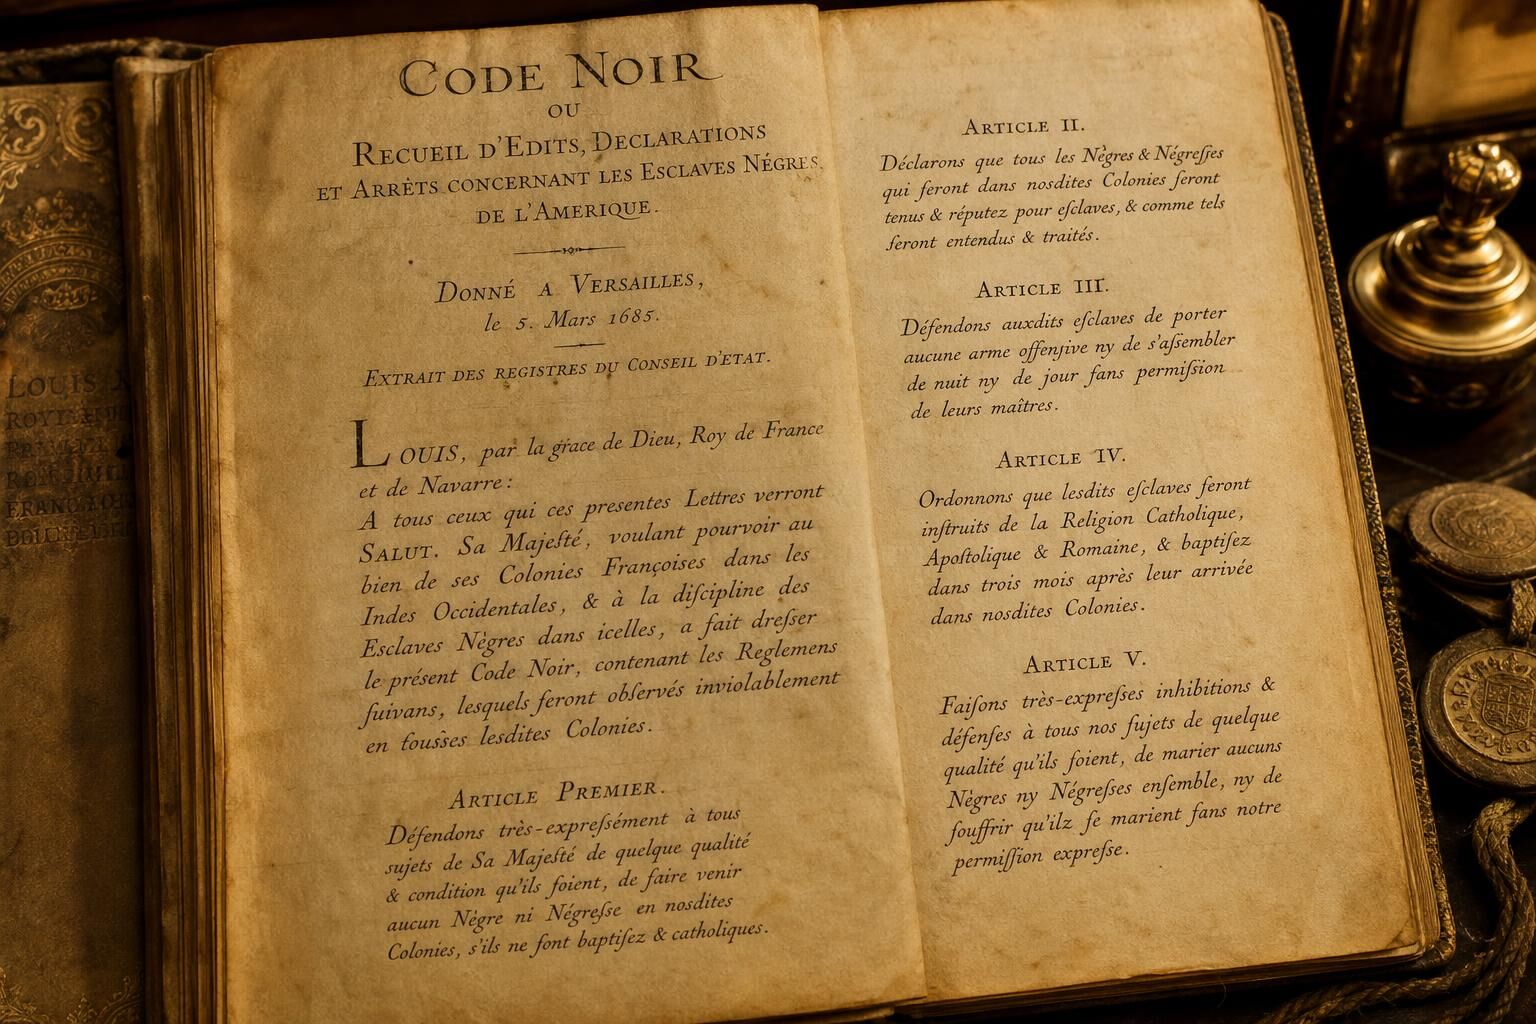 CODE NOIR
OU
RECUEIL D'EDITS, DECLARATIONS
ET ARRÊTS CONCERNANT LES ESCLAVES NÉGRES
DE L'AMERIQUE.
DONNÉ A VERSAILLES,
le 5. Mars 1685.
EXTRAIT DES REGISTRES DU CONSEIL D'ETAT.
LOUIS, par la grace de Dieu, Roy de France
et de Navarre :
A tous ceux qui ces presentes Lettres verront
SALUT. Sa Majeſté, voulant pourvoir au
bien de ses Colonies Françoises dans les
Indes Occidentales, & à la diſcipline des
Esclaves Nègres dans icelles, a fait dreſser
le présent Code Noir, contenant les Reglemens
ſuivans, lesquels ſeront obſervés inviolablement
en lesdites Colonies.
ARTICLE PREMIER.
Défendons très-expreſsément à tous
sujets de Sa Majeſté de quelque qualité
& condition qu'ils ſoient, de faire venir
aucun Nègre ni Négreſse en nosdites
Colonies, s'ils ne ſont baptiſez & catholiques.
ARTICLE II.
Déclarons que tous les Nègres & Négreſſes
qui ſeront dans nosdites Colonies ſeront
tenus & réputez pour eſclaves, & comme tels
ſeront entendus & traités.
ARTICLE III.
Défendons auxdits eſclaves de porter
aucune arme offenſive ny de s'aſsembler
de nuit ny de jour ſans permiſsion
de leurs maîtres.
ARTICLE IV.
Ordonnons que lesdits eſclaves ſeront
inſtruits de la Religion Catholique,
Apoſtolique & Romaine, & baptiſez
dans trois mois après leur arrivée
dans nosdites Colonies.
ARTICLE V.
Faiſons très-expreſses inhibitions &
défenſes à tous nos ſujets de quelque
qualité qu'ils ſoient, de marier aucuns
Nègres ny Négreſses enſemble, ny de
ſouffrir qu'ilz ſe marient ſans notre
permiſſion expreſse.
LOUIS